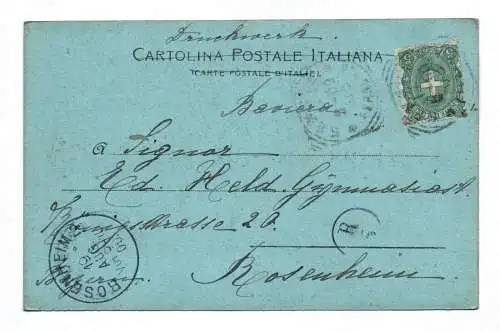 Druckwerk.
CARTOLINA POSTALE ITALIANA
(CARTE POSTALE D'ITALIE)
Baviera
a Signor
Ed. Held Gymnasiast
Königsstrasse 20.
Rosenheim
ROSENHEIM
AUG